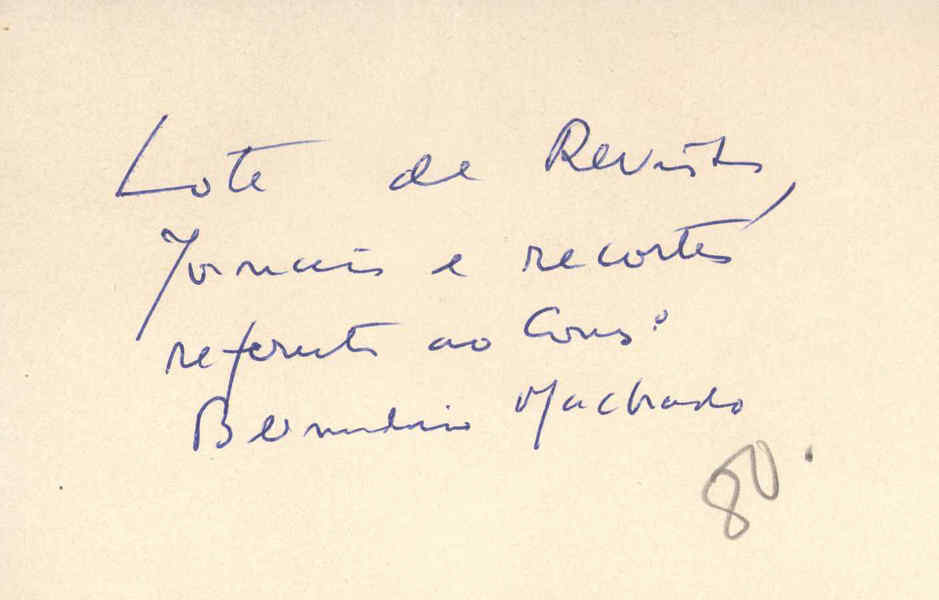 Lote de Revistas,
Jornais e recortes
referentes ao Consº
Bernardino Machado
80.